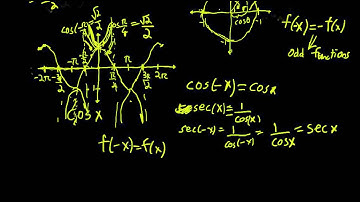 √2/2
cos(-π/4)
cos π/4 = √2/2
-2π
-3π/2
-π
π/4
π
3π/2
2π
cos x
f(-x)=f(x)
cosθ
-1
f(-x)=-f(x)
odd functions
cos(-x)=cosx
sec(x)=1/cos(x)
sec(-x)=1/cos(-x)=1/cosx=secx